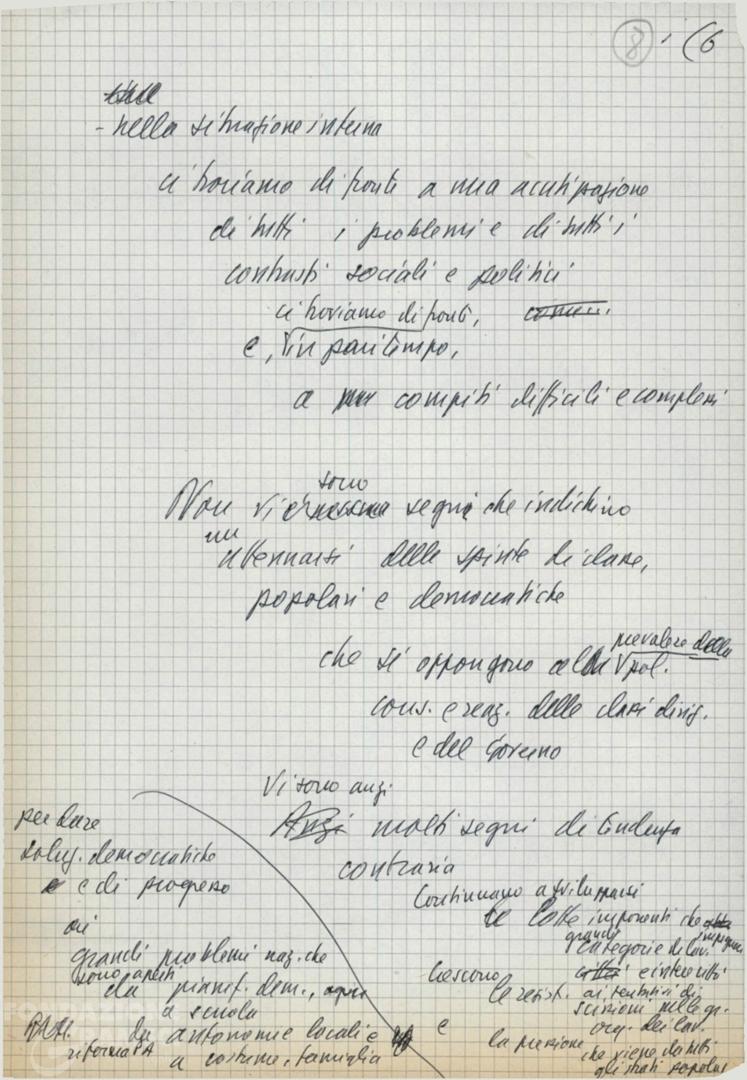 8 (6
- nella situazione interna
ci troviamo di fronte a una acutizzazione
di tutti i problemi e di tutti i
contrasti sociali e politici
ci troviamo di fronte,
e, in pari tempo,
a compiti difficili e complessi
Non vi sono segni che indichino
un attenuarsi delle spinte di classe,
popolari e democratiche
che si oppongono al prevalere della pol.
cons. e reaz. delle classi dirig.
e del Governo
Vi sono anzi
Anzi molti segni di tendenza
contraria
Continuano a svilupparsi
le lotte imponenti che impegnano
grandi categorie di lav.
e intere città
Crescono
le resist. ai tentativi di
scissioni nelle gr.
org. dei lav.
e la pressione che viene da tutti
gli strati popolari
per dare
soluz. democratiche
e di progresso
ai
grandi problemi naz. che
sono aperti
da pianif. dem., agri
a scuola
riforma PA da autonomie locali e
a costume, famiglia